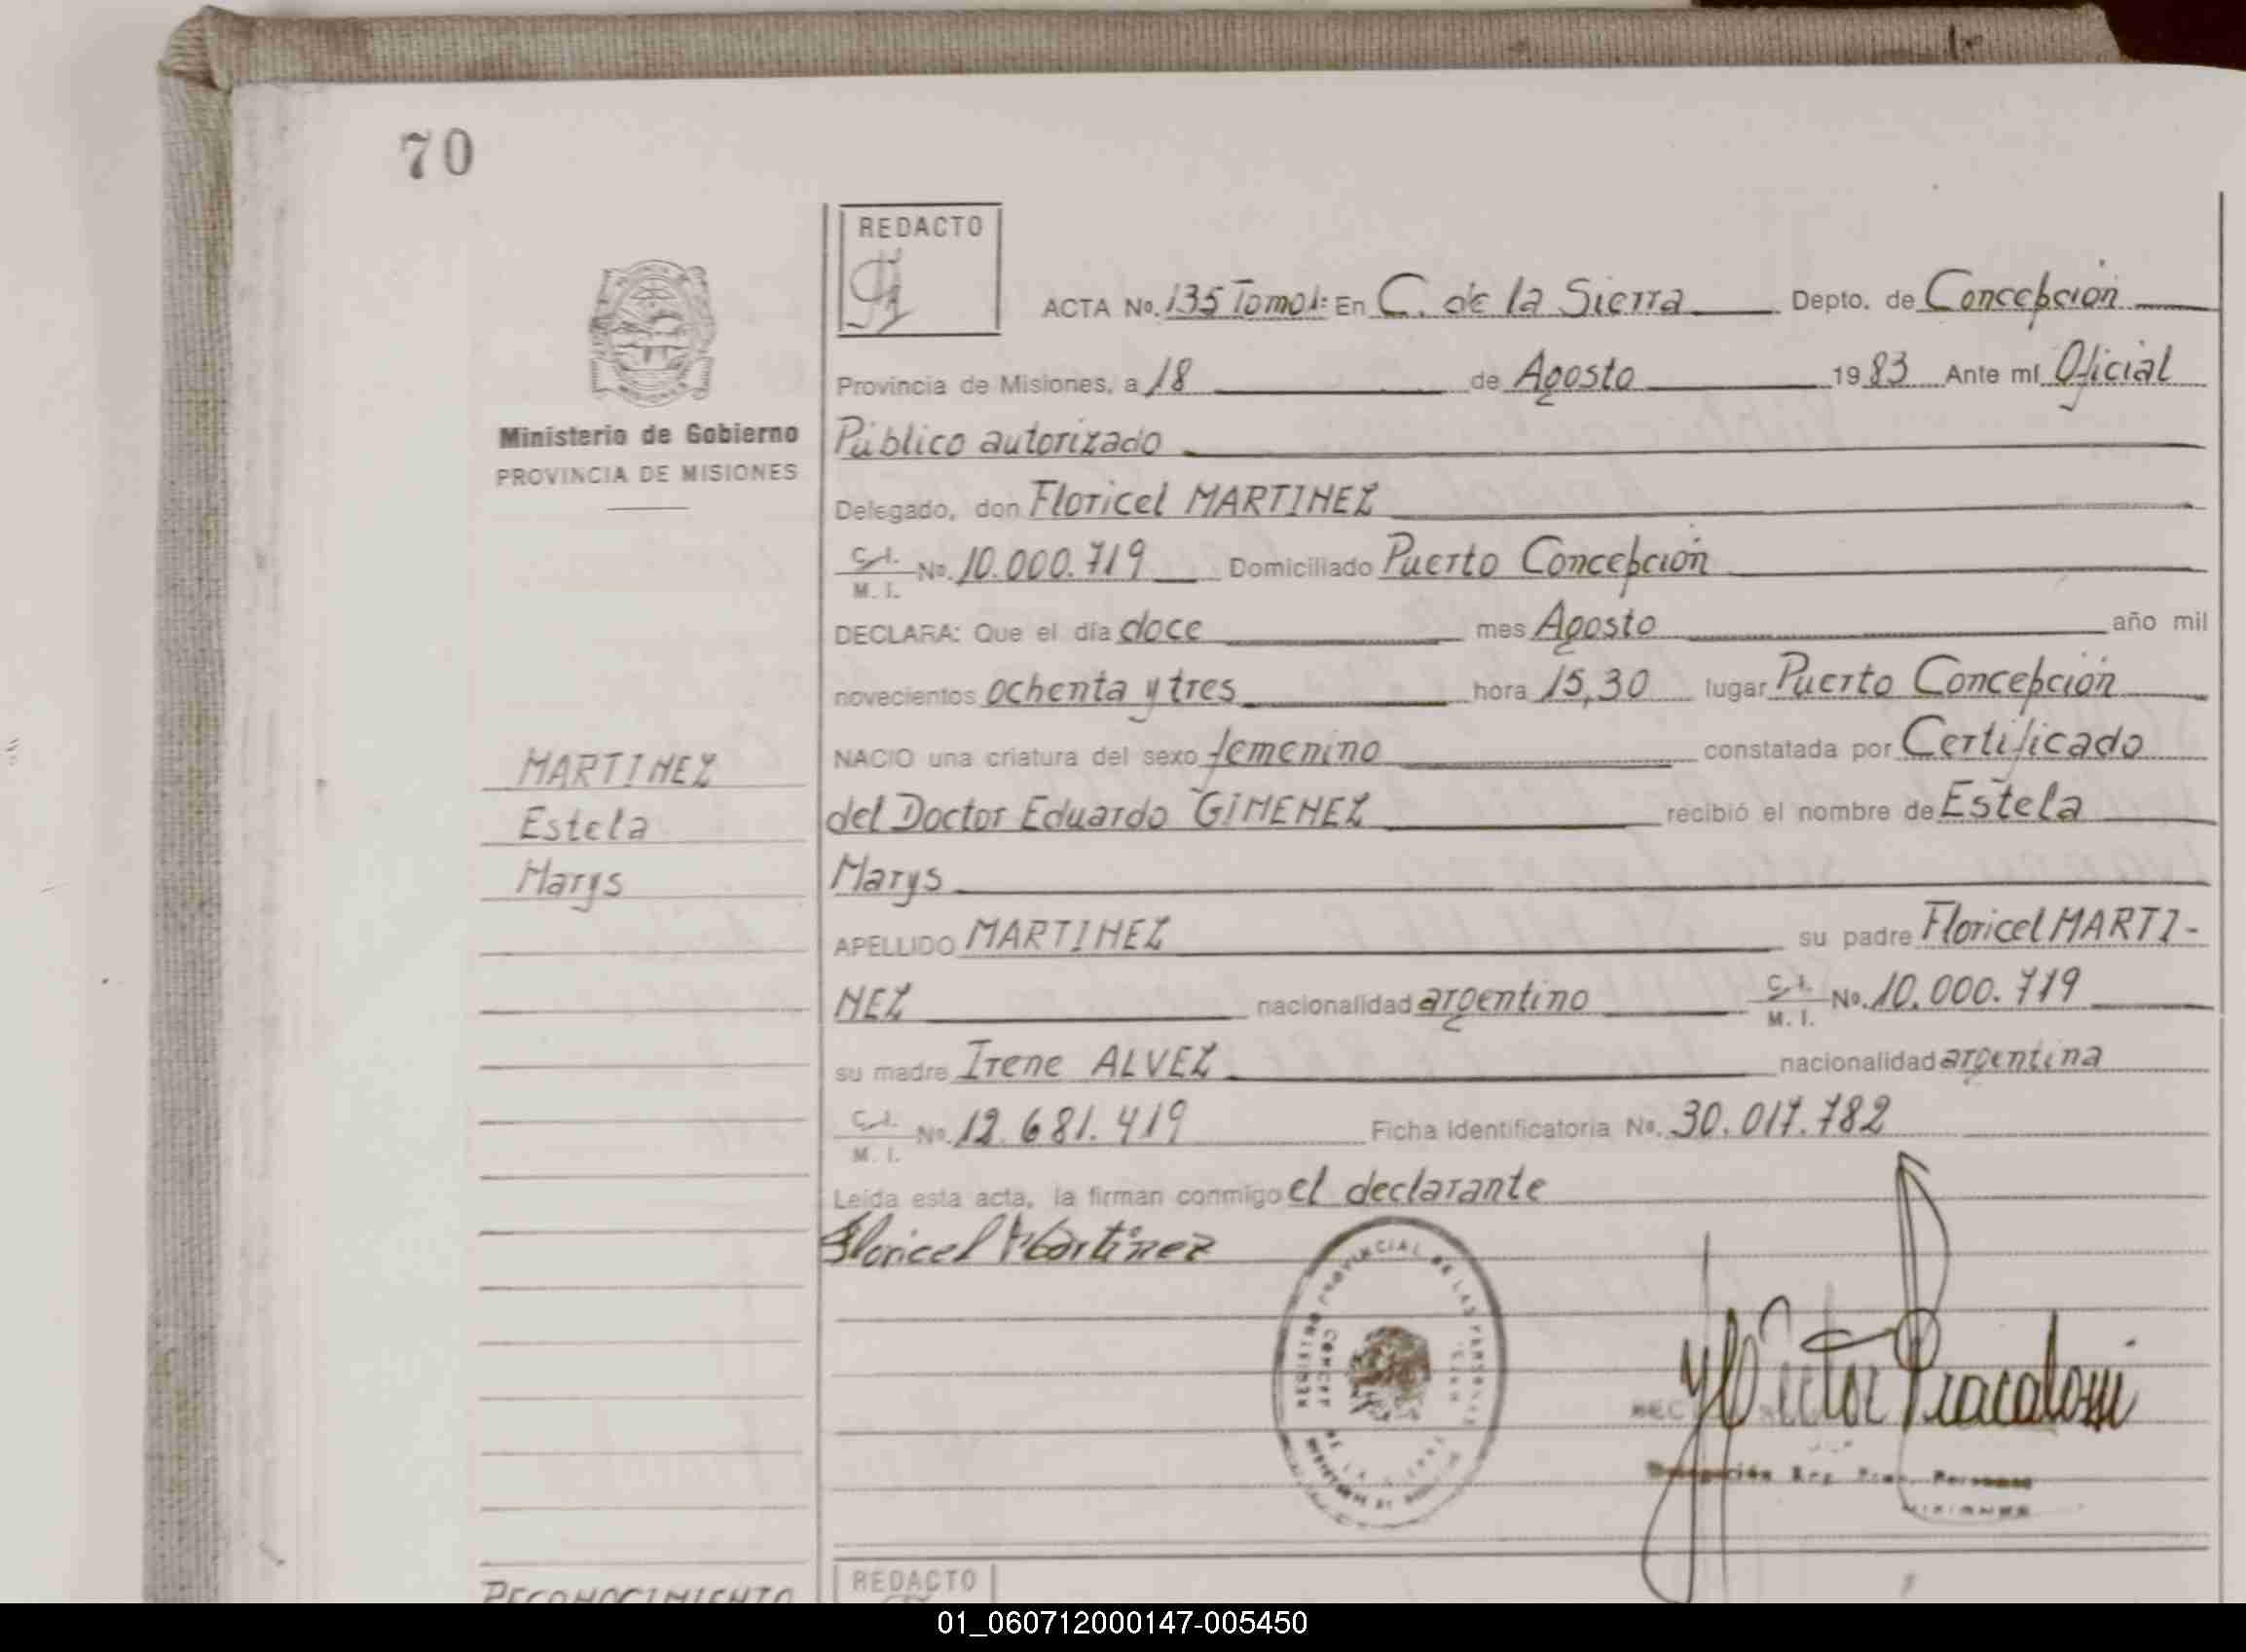 70
REDACTO
ACTA No. 135 Tomo 1: En C. de la Sierra Depto. de Concepción
Provincia de Misiones, a 18 de Agosto 1983 Ante mí Oficial
Ministerio de Gobierno
PROVINCIA DE MISIONES
Público autorizado
Delegado, don Floricel MARTINEZ
C.I. M.I. No. 10.000.719 Domiciliado Puerto Concepción
DECLARA: Que el día doce mes Agosto año mil
novecientos ochenta y tres hora 15,30 lugar Puerto Concepción
NACIO una criatura del sexo femenino constatada por Certificado
del Doctor Eduardo GIMENEZ recibió el nombre de Estela
Marys
MARTINEZ
Estela
Marys
APELLIDO MARTINEZ su padre Floricel MARTI-
NEZ nacionalidad argentino C.I. M.I. No. 10.000.719
su madre Irene ALVEZ nacionalidad argentina
C.I. M.I. No. 12.681.419 Ficha Identificatoria No. 30.017.782
Leída esta acta, la firman conmigo el declarante
Floricel Martinez
PROVINCIAL DE LAS PERSONAS
DE LA
Delegación Personas
MISIONES
RECONOCIMIENTO
REDACTO
01_060712000147-005450